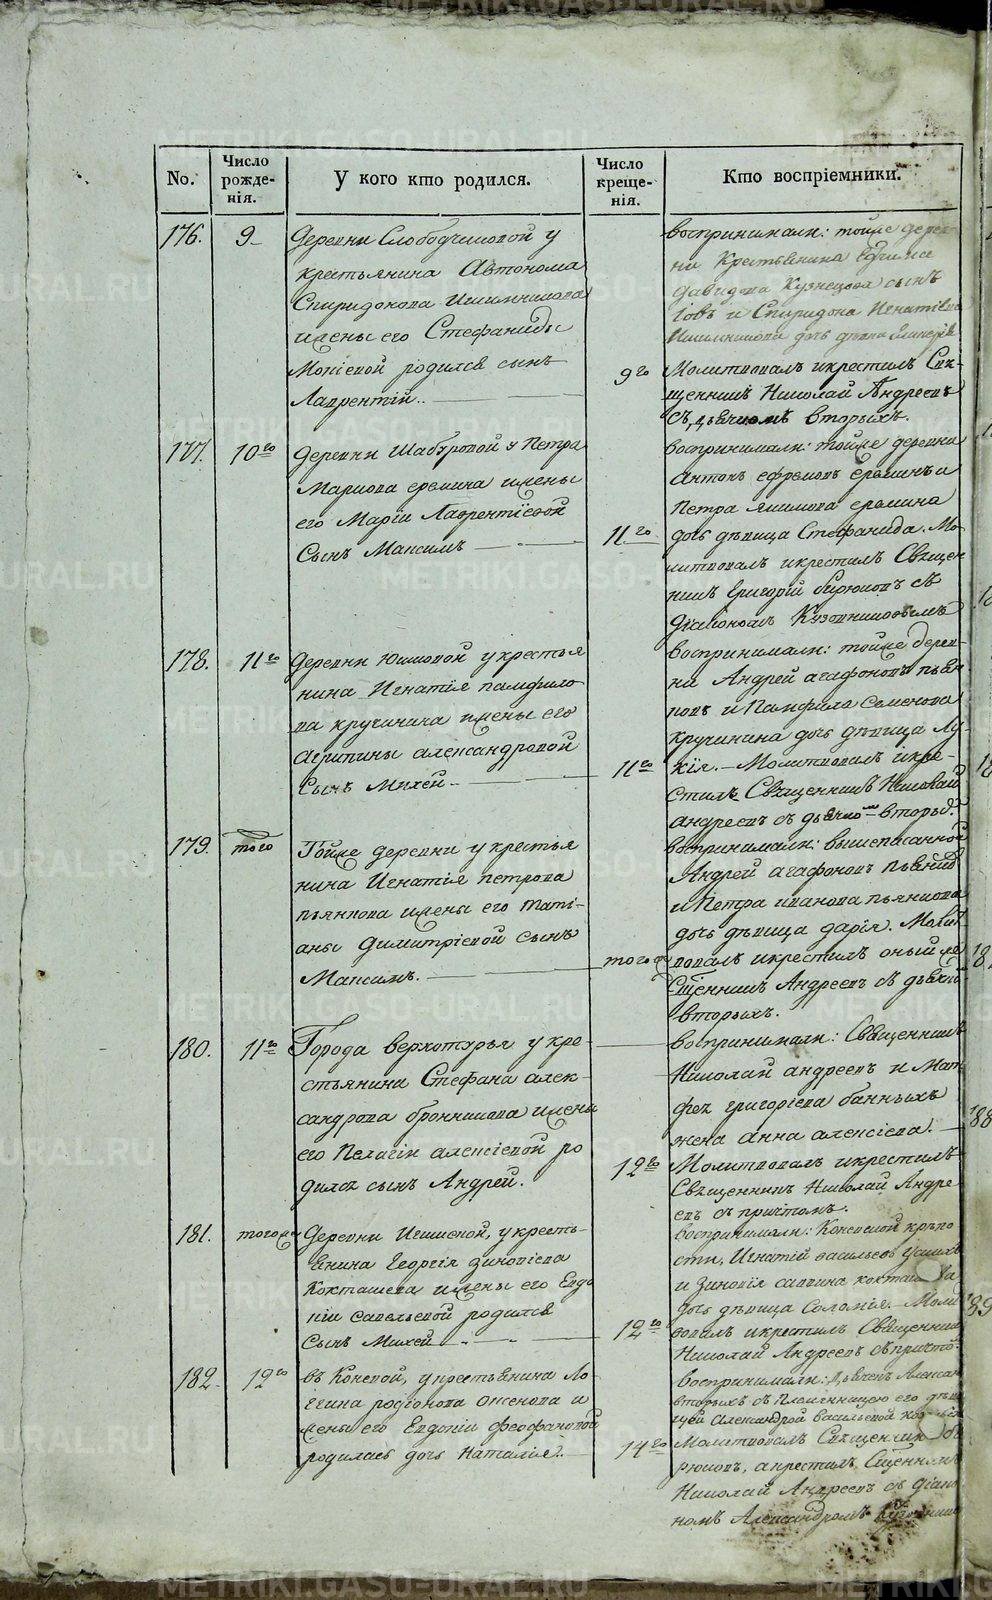 No.
Число рожденія.
У кого кто родился.
Число крещенія.
Кто воспріемники.
176.
9
Деревни Слободчиковой у
крестьянина Автонома
Спиридонова Ишимникова
жены его Стефаниды
Моисевой родился сынъ
Лаврентій
9го
воспринимали: тойже дерев-
ни Крестьянина Ефима
Давидова Кузнецова сынъ
Іовъ и Спиридона Игнатіева
Ишимникова дочь девица
Молитвовалъ и крестилъ Свя-
щенникъ Николай Андреевъ
съ дьячкомъ вторыхъ.
177.
10го
деревни Шабуровой у Петра
Маркова еремина жены
его Маріи Лаврентіевой
Сынъ Максимъ
11го
воспринимали: тойже деревни
Антонъ ефремовъ ереминъ и
Петра Якимова еремина
дочь дѣвица Стефанида. Мо-
литвовалъ и крестилъ Священ
никъ Григорій Бирюковъ съ
Діакономъ Кузовниковымъ
178.
11го
деревни Юшковой у крестья
нина Игнатія памфило
ва кручинина жены его
агрипины александровой
Сынъ Михей
11го
воспринимали: тойже дерев-
ни Андрей агафоновъ пьян
ковъ и Памфила Семенова
Кручинина дочь дѣвица Лу-
кія. Молитвовалъ и кре-
стилъ Священникъ Николай
андреевъ съ дьячкомъ вторых.
179.
того
Тойже деревни у крестья
нина Игнатія петрова
пьянкова жены его тати-
аны димитріевой сынъ
Максимъ.
тогож
воспринимали: вышеписанной
Андрей агафоновъ пьянков
и Петра иванова пьянкова
дочь дѣвица дарія. Молит
вовалъ и крестилъ оный же
Сщенникъ Андреевъ съ дьячк
вторыхъ.
180.
11го
Города верхотурья у кре-
стьянина Стефана алек-
сандрова бронникова жены
его Пелагіи алексіевой ро
дился сынъ Андрей.
12го
воспринимали: Священникъ
Николай андреевъ и Мат
фея григоріева банныхъ
жена анна алексіева.
Молитвовалъ и крестилъ
Священникъ Николай Андре
евъ съ причтомъ.
181.
тогож
Деревни Ишиневой, у кресть-
янина Георгія Зиновіева
Кокташева жены его Евдо
кіи савельевой родился
Сынъ Михей
12го
воспринимали: Коневской крѣпо
сти, Игнатій васильевъ
и Зиновія саввина кокташева
дочь дѣвица Соломія. Моли
вовалъ и крестилъ Священник
Николай Андреевъ съ причто.
182.
12го
въ Коневой, у крестьянина Ло
гина родіонова аксенова и
жены его Евдокіи феофановой
родилась дочь Наталія.
14го
воспринимали: дьячекъ Алексан
вторыхъ съ племянницею его дѣви
цей Александрой васильевой
Молитвовалъ Священникъ Би
рюковъ, а крестилъ Сщенникъ
Николай Андреевъ съ діако
номъ Александромъ Кузовнико
188
189
METRIKI.GASO-URAL.RU